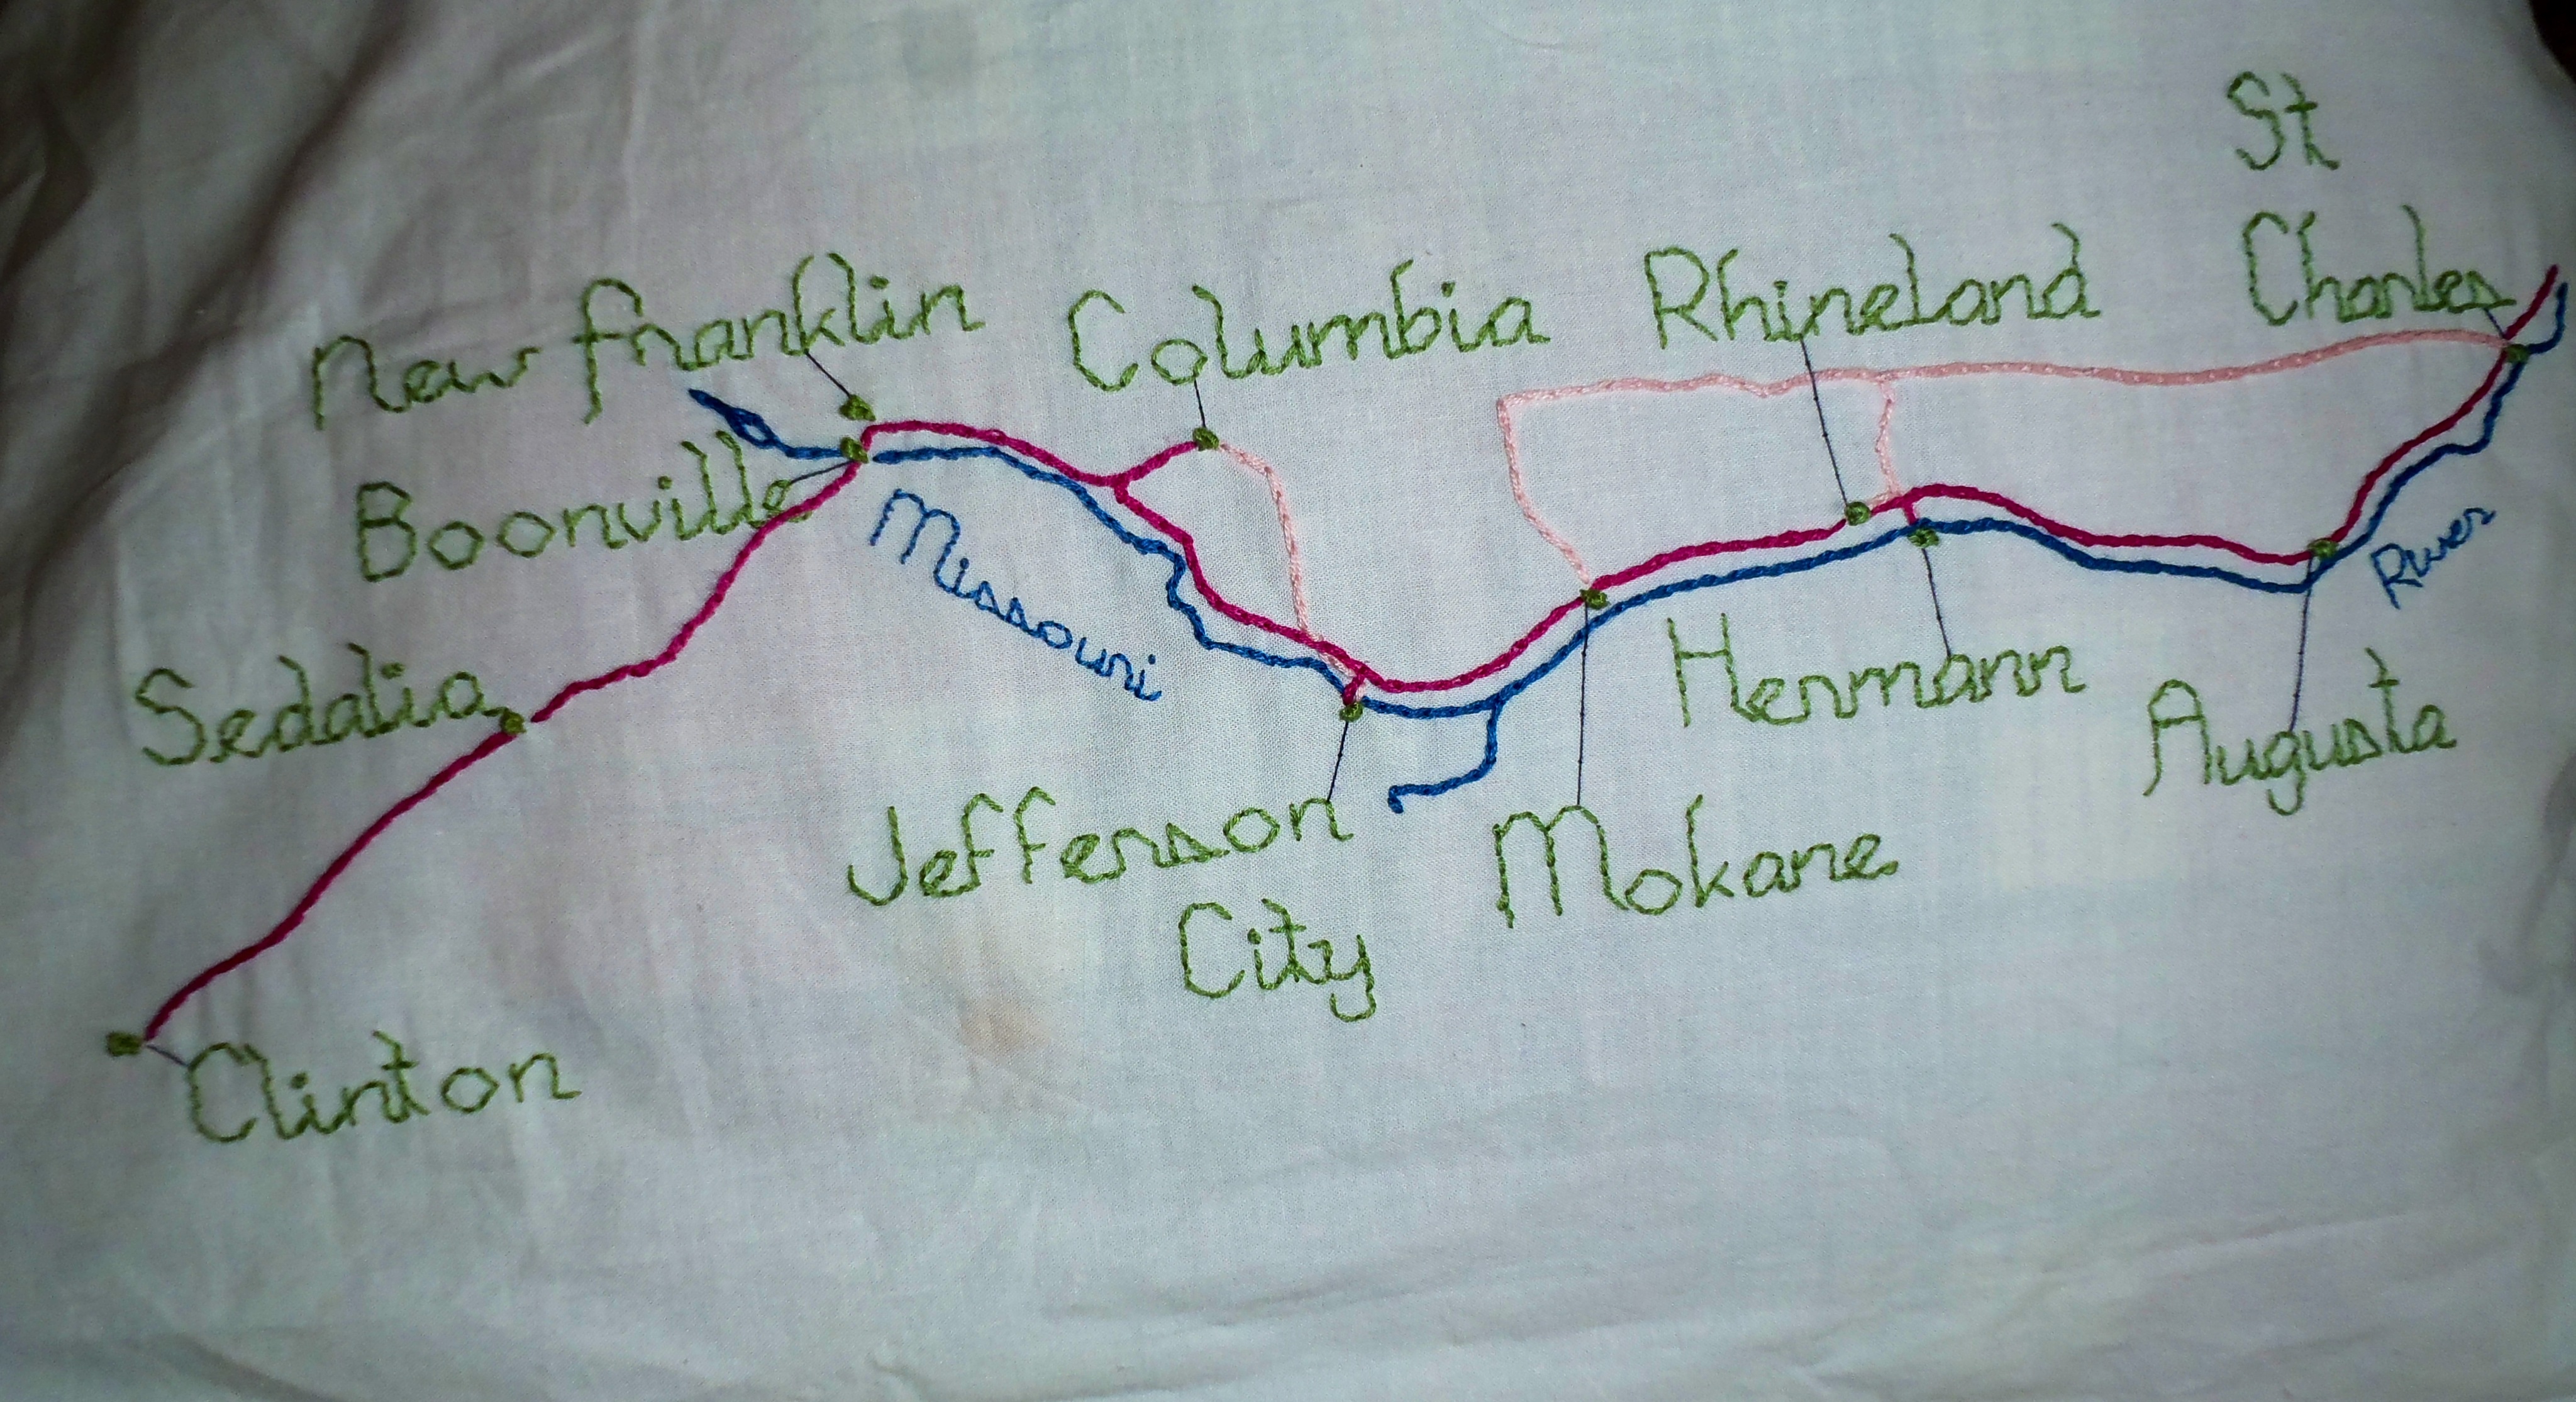 St
Charles
New Franklin
Columbia
Rhineland
Boonville
Missouri
River
Sedalia
Hermann
Augusta
Jefferson
City
Mokane
Clinton